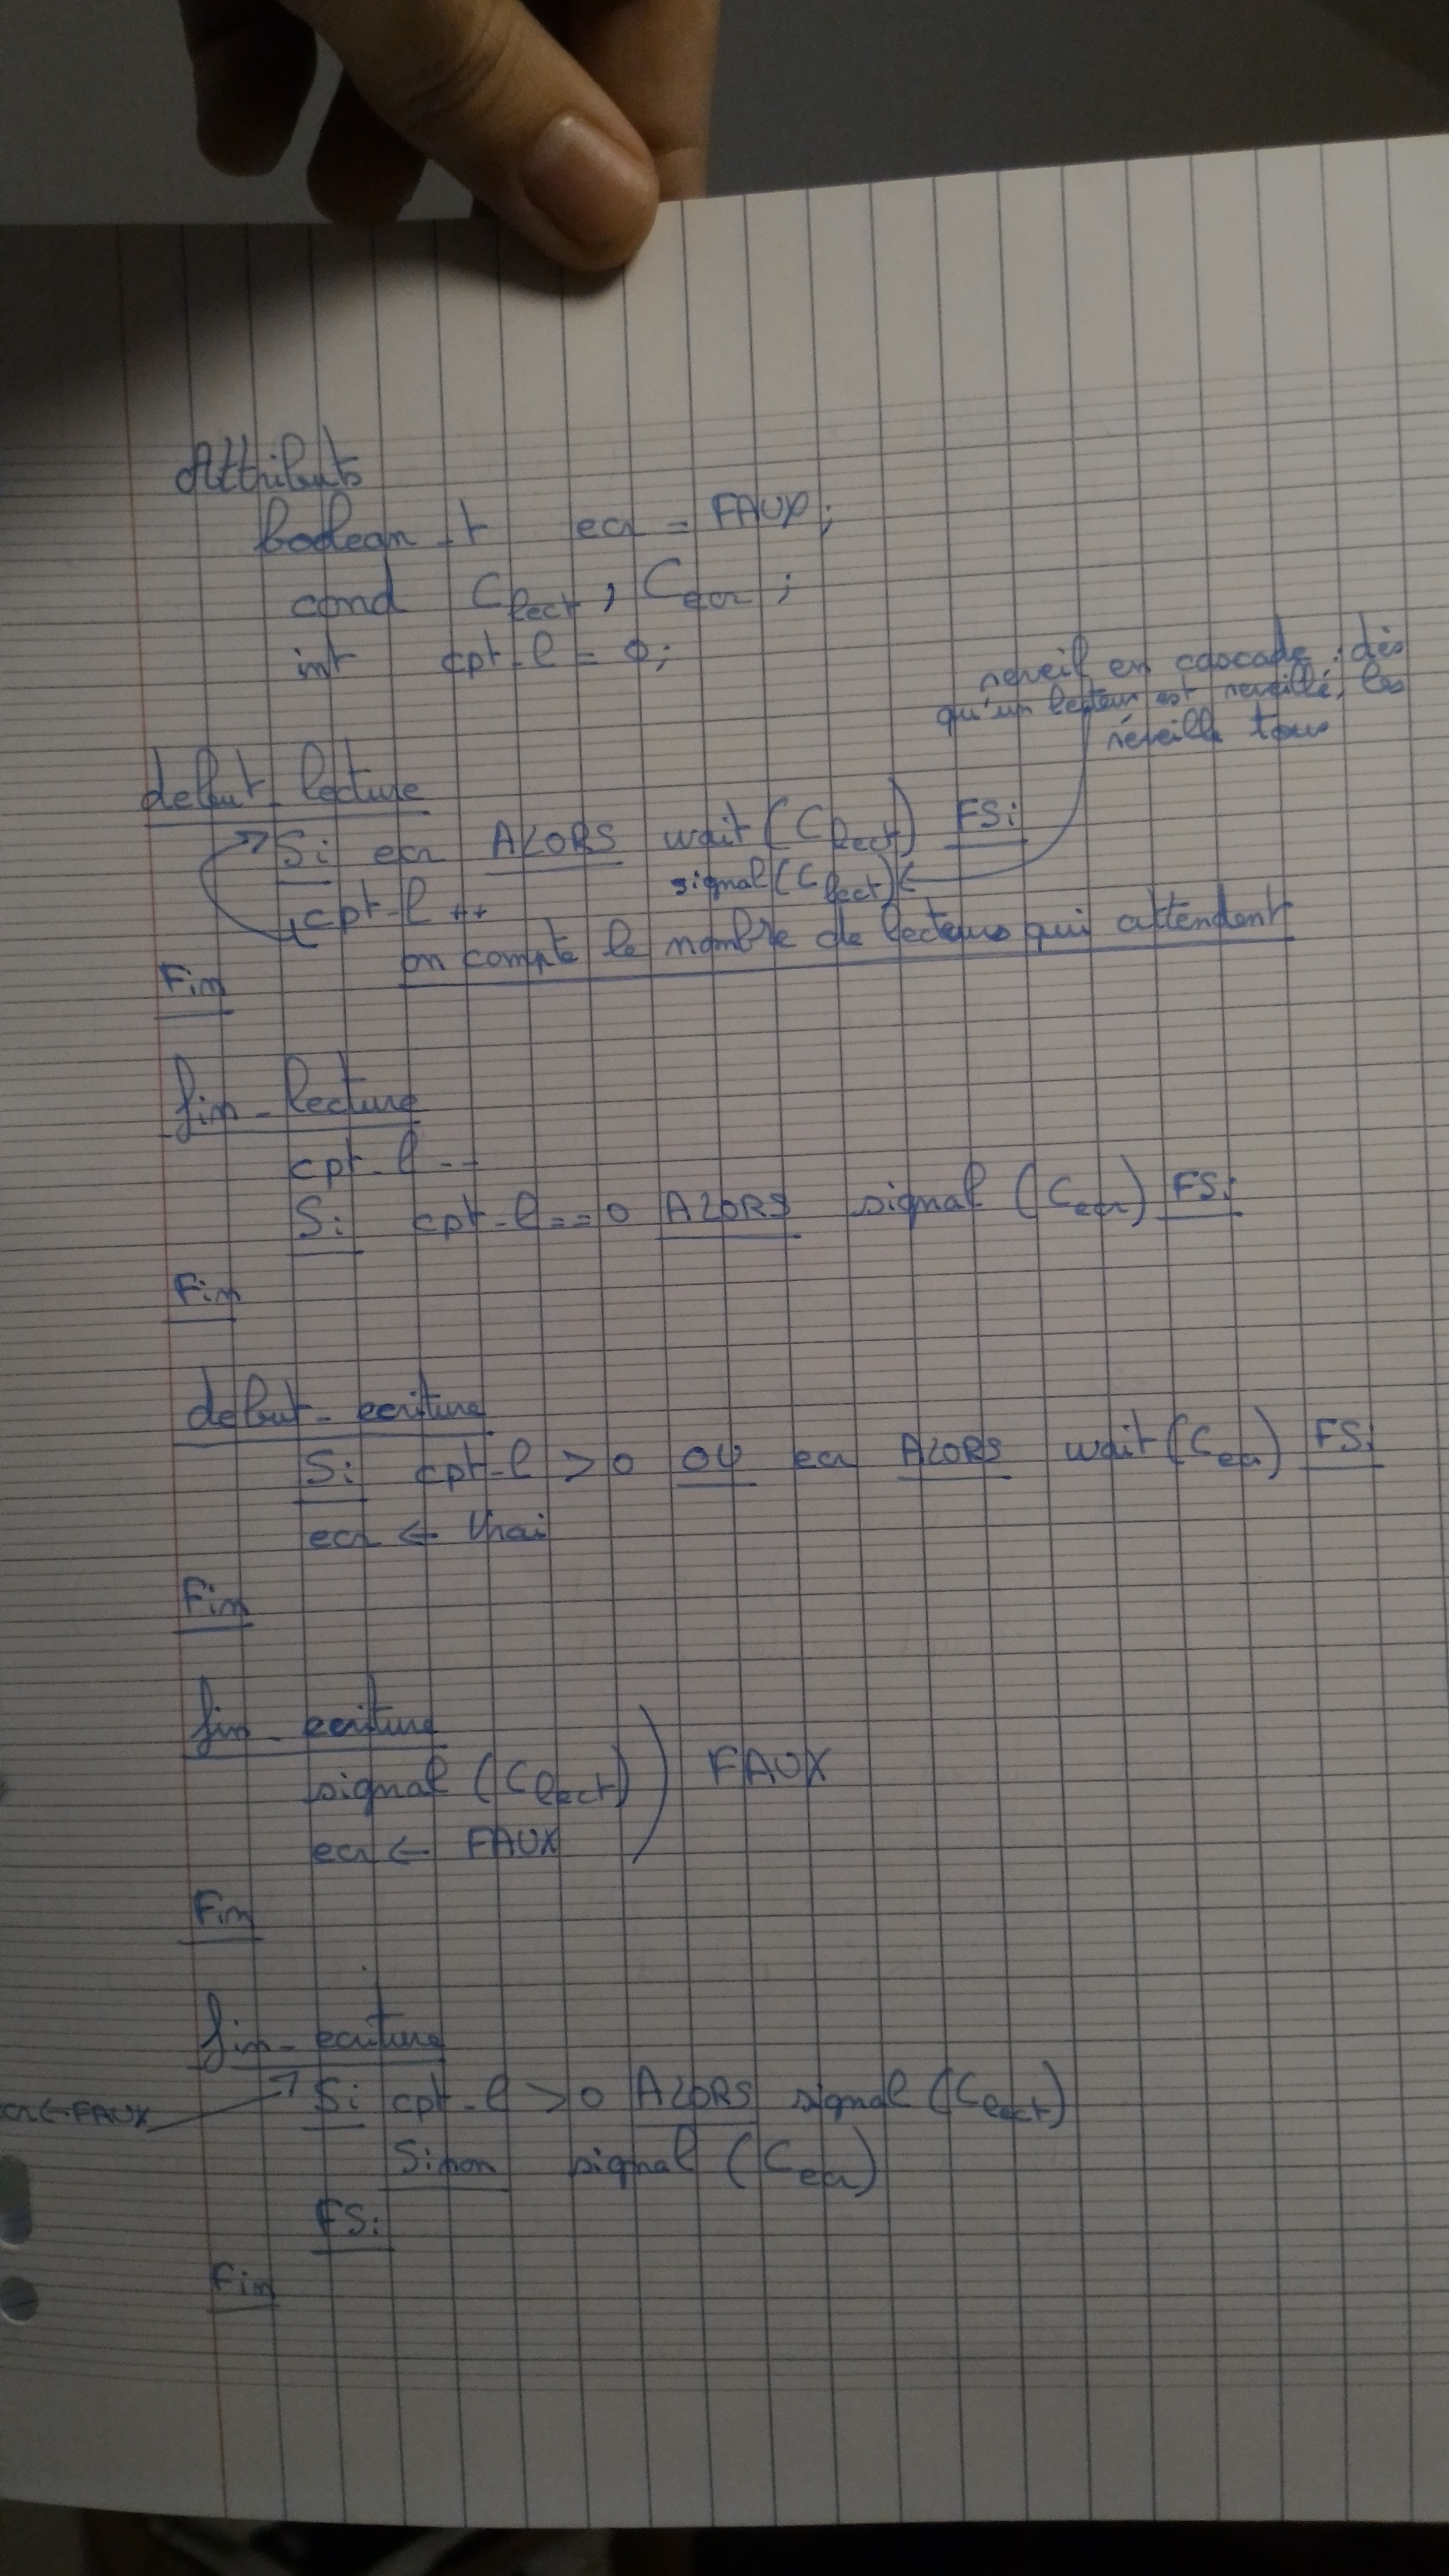 Attributs
boolean_t ecr = FAUX;
cond C_lect, C_ecr;
int cpt_l = 0;
reveil en cascade : dès
qu'un lecteur est réveillé, les
réveille tous
debut_lecture
Si ecr ALORS wait(C_lect) FSi
signal(C_lect)
cpt_l++
on compte le nombre de lecteurs qui attendent
Fin
fin_lecture
cpt_l--
Si cpt_l==0 ALORS signal (C_ecr) FSi
Fin
debut_ecriture
Si cpt_l > 0 OU ecr ALORS wait(C_ecr) FSi
ecr ← Vrai
Fin
fin_ecriture
signal (C_lect)
FAUX
ecr ← FAUX
Fin
fin_ecriture
Si cpt_l > 0 ALORS signal (C_lect)
ecr ← FAUX
Sinon signal (C_ecr)
FSi
Fin